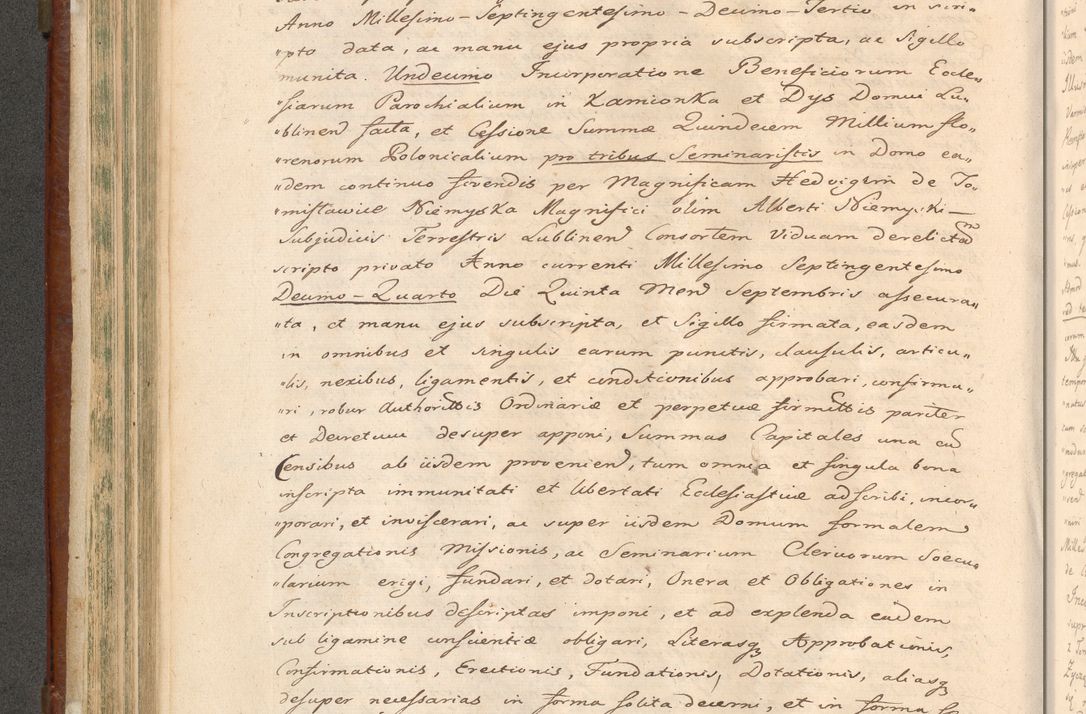 Anno Millesimo-Septingentesimo-Decimo-Tertio in scri„
„pto data, ac manu ejus propria subscripta, ac Sigillo
munita. Undecimo Incorporatione Beneficiorum Eccle„
„siarum Parochialium in Kamionka et Dys Domui Lu„
„blinen facta, et Cessione Summæ Quindecem Millium flo„
„renorum Polonicalium pro tribus Seminaristis in Domo ea„
„dem continuo fovendis per Magnificam Hedvigem de To„
„misławice Niemyska Magnifici olim Alberti Niemyski—
Subjudicis Terrestris Lublinen Consortem Viduam derelictam
scripto privato Anno currenti Millesimo Septingentesimo
Decimo-Quarto Die Quinta Men Septembris assecura„
„ta, et manu ejus subscripta, et Sigillo firmata, easdem
in omnibus et singulis earum punctis, clausulis, articu„
„lis, nexibus, ligamentis, et conditionibus approbari, confirma„
„ri, robur Authorittis Ordinariæ et perpetuæ firmittis pariter
et Decretum desuper apponi, Summas Capitales una cu
Censibus ab iisdem provenien, tum omnia et singula bona
inscripta immunitati et libertati Ecclesiasticæ adscribi, incor„
„porari, et inviscerari, ac super iisdem Domum formalem
Congregationis Missionis, ac Seminarium Clericorum Soecu„
„larium erigi, fundari, et dotari, Onera et Obligationes in
Inscriptionibus descriptas imponi, et ad explenda eadem
sub ligamine conscientiæ obligari, Literasq3 Approbationis,
Confirmationis, Erectionis, Fundationis, Dotationis, aliasq3
desuper necessarias in forma solita decerni, et in forma